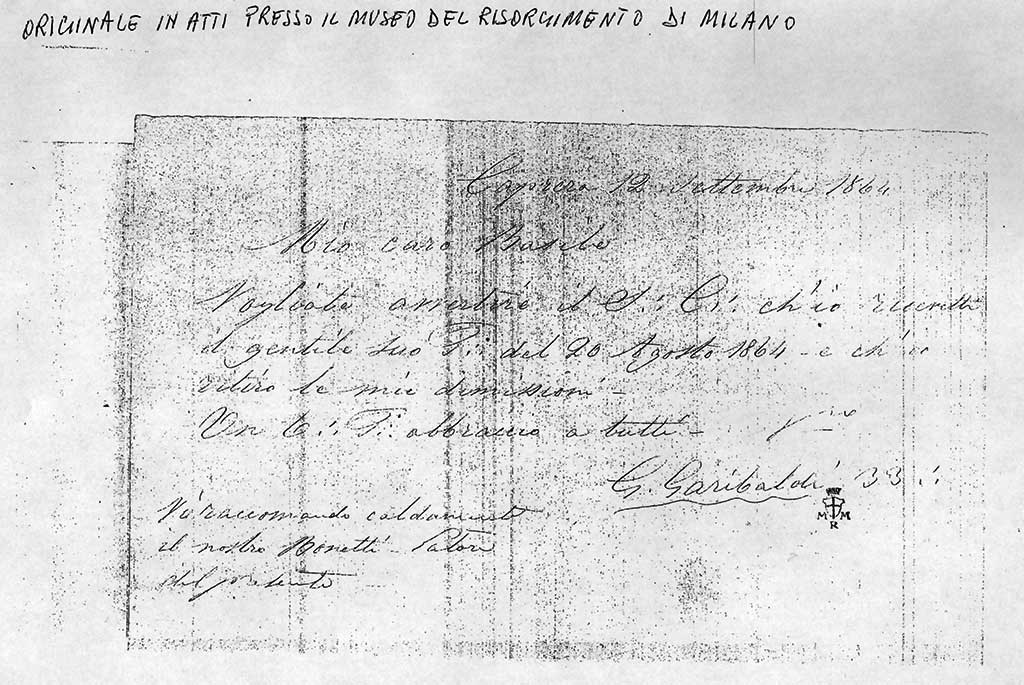 ORIGINALE IN ATTI PRESSO IL MUSEO DEL RISORGIMENTO DI MILANO
Caprera 12 Settembre 1864
Mio caro Basile
Vogliate avvertire il S∴ C∴ ch'io ricevetti
il gentile suo F∴ del 20 Agosto 1864 - e ch'io
ritiro le mie dimissioni -
Un t∴ F∴ abbraccio a tutti -
G. Garibaldi 33∴
M M
R
Vi raccomando caldamente
il nostro Bonetti - latore
del presente